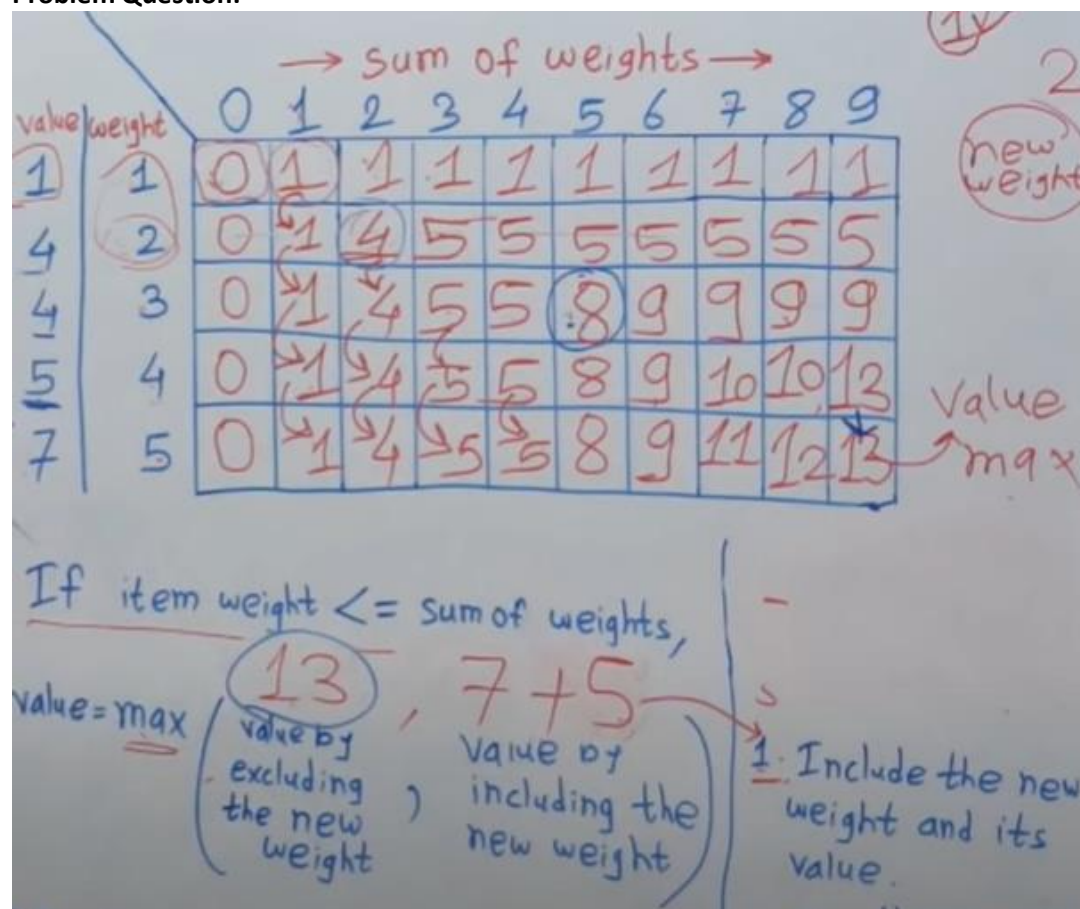 → sum of weights →
value weight 0 1 2 3 4 5 6 7 8 9
1 1 0 1 1 1 1 1 1 1 1 1
4 2 0 1 4 5 5 5 5 5 5 5
4 3 0 1 4 5 5 8 9 9 9 9
5 4 0 1 4 5 5 8 9 10 10 13
7 5 0 1 4 5 5 8 9 11 12 13
2
new
weight
Value
max
If item weight <= sum of weights,
13, 7+5
value = max ( value by excluding the new weight , value by including the new weight )
1. Include the new
weight and its
value.